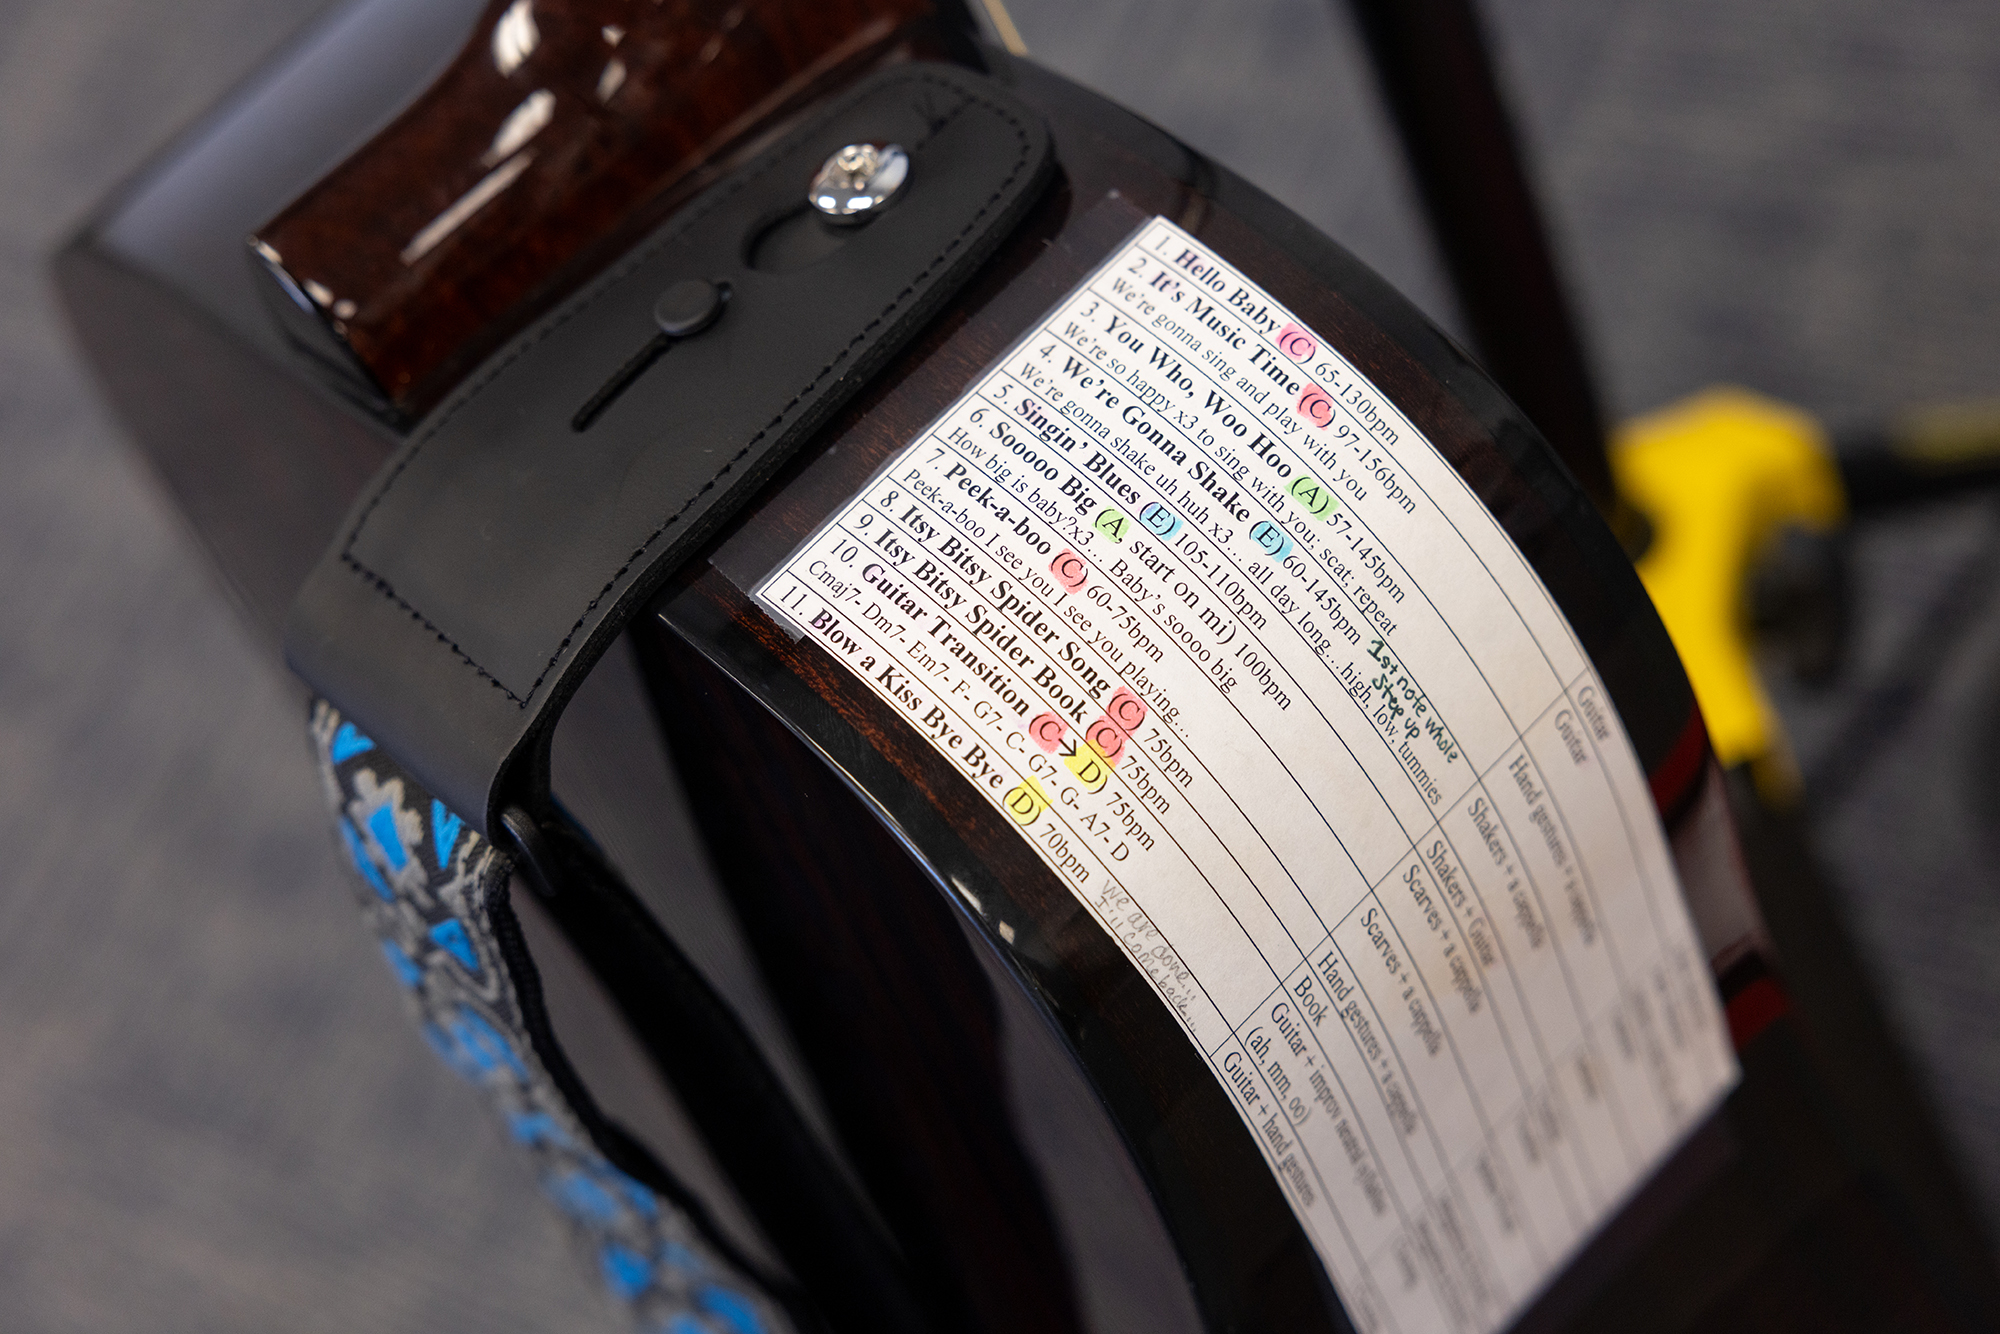 1. Hello Baby (C) 65-130bpm
Guitar
2. It's Music Time (C) 97-156bpm
We're gonna sing and play with you
Guitar
3. You Who, Woo Hoo (A) 57-145bpm
We're so happy x3 to sing with you; scat; repeat
Hand gestures + a cappella
4. We're Gonna Shake (E) 60-145bpm
We're gonna shake uh huh x3... all day long...high, low, tummies
1st note whole
step up
Shakers + a cappella
5. Singin' Blues (E) 105-110bpm
Shakers + Guitar
6. Sooooo Big (A, start on mi) 100bpm
How big is baby?x3... Baby's soooo big
Scarves + a cappella
7. Peek-a-boo (C) 60-75bpm
Peek-a-boo I see you I see you playing...
Scarves + a cappella
8. Itsy Bitsy Spider Song (C) 75bpm
Hand gestures + a cappella
9. Itsy Bitsy Spider Book (C) 75bpm
Book
10. Guitar Transition (C→D) 75bpm
Cmaj7- Dm7- Em7- F- G7- C- G7- G- A7- D
Guitar + improv neutral syllables
(ah, mm, oo)
11. Blow a Kiss Bye Bye (D) 70bpm
we are done!!
I'll come back!!
Guitar + hand gestures